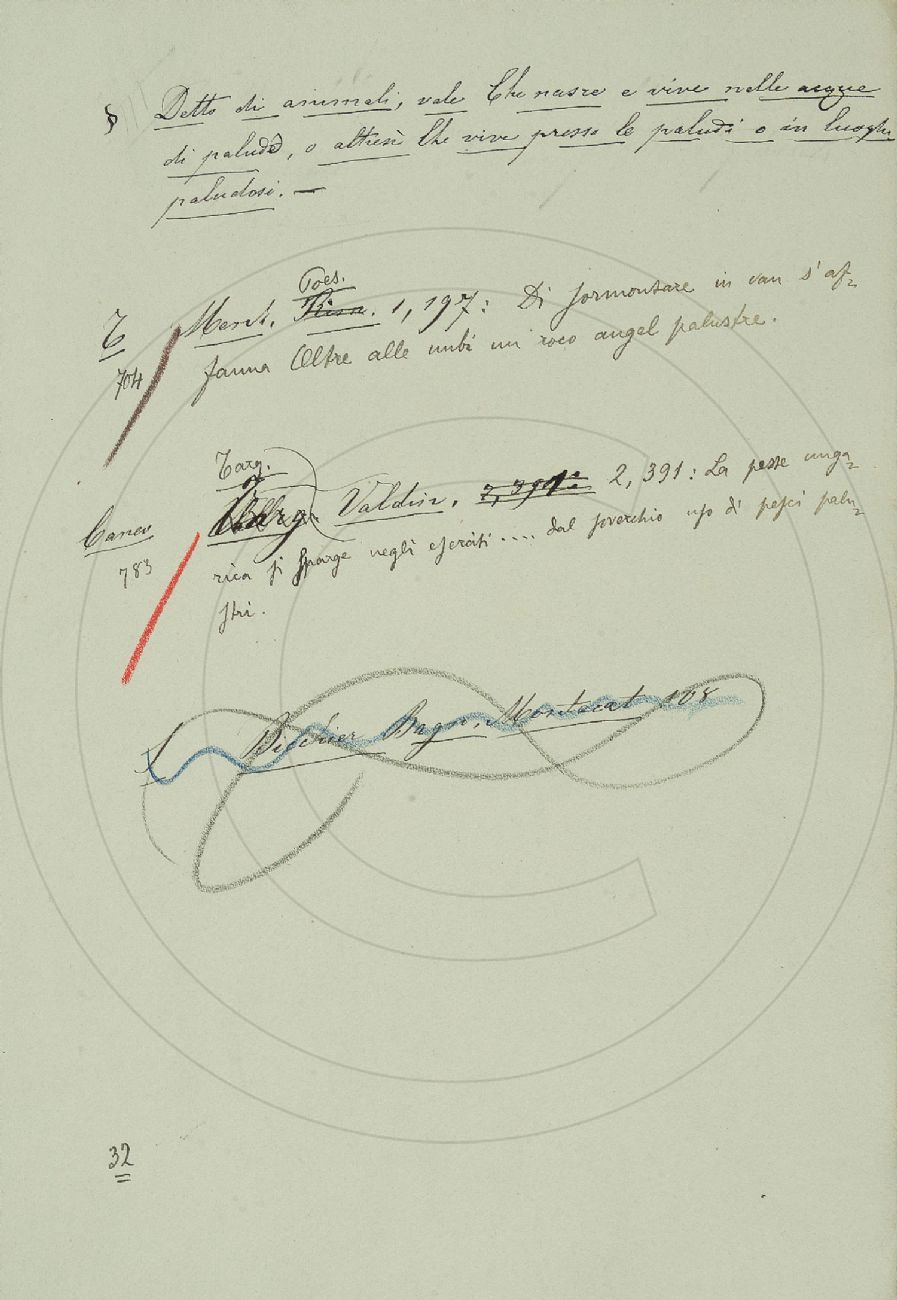 § Detto di animali, vale Che nasce e vive nelle acque
di paludi, o altresì Che vive presso le paludi o in luoghi
paludosi. —
Poes.
T March. Rim. 1, 197: Di sormontare in van s'af-
704 fanna Oltre alle nubi un roco augel palustre.
Targ.
Valdin. 2, 391: La peste unga-
Canev
783 rica si sparge negli eserciti .... dal soverchio uso di pesci palu-
stri.
Bagn. Montecat. 108
32